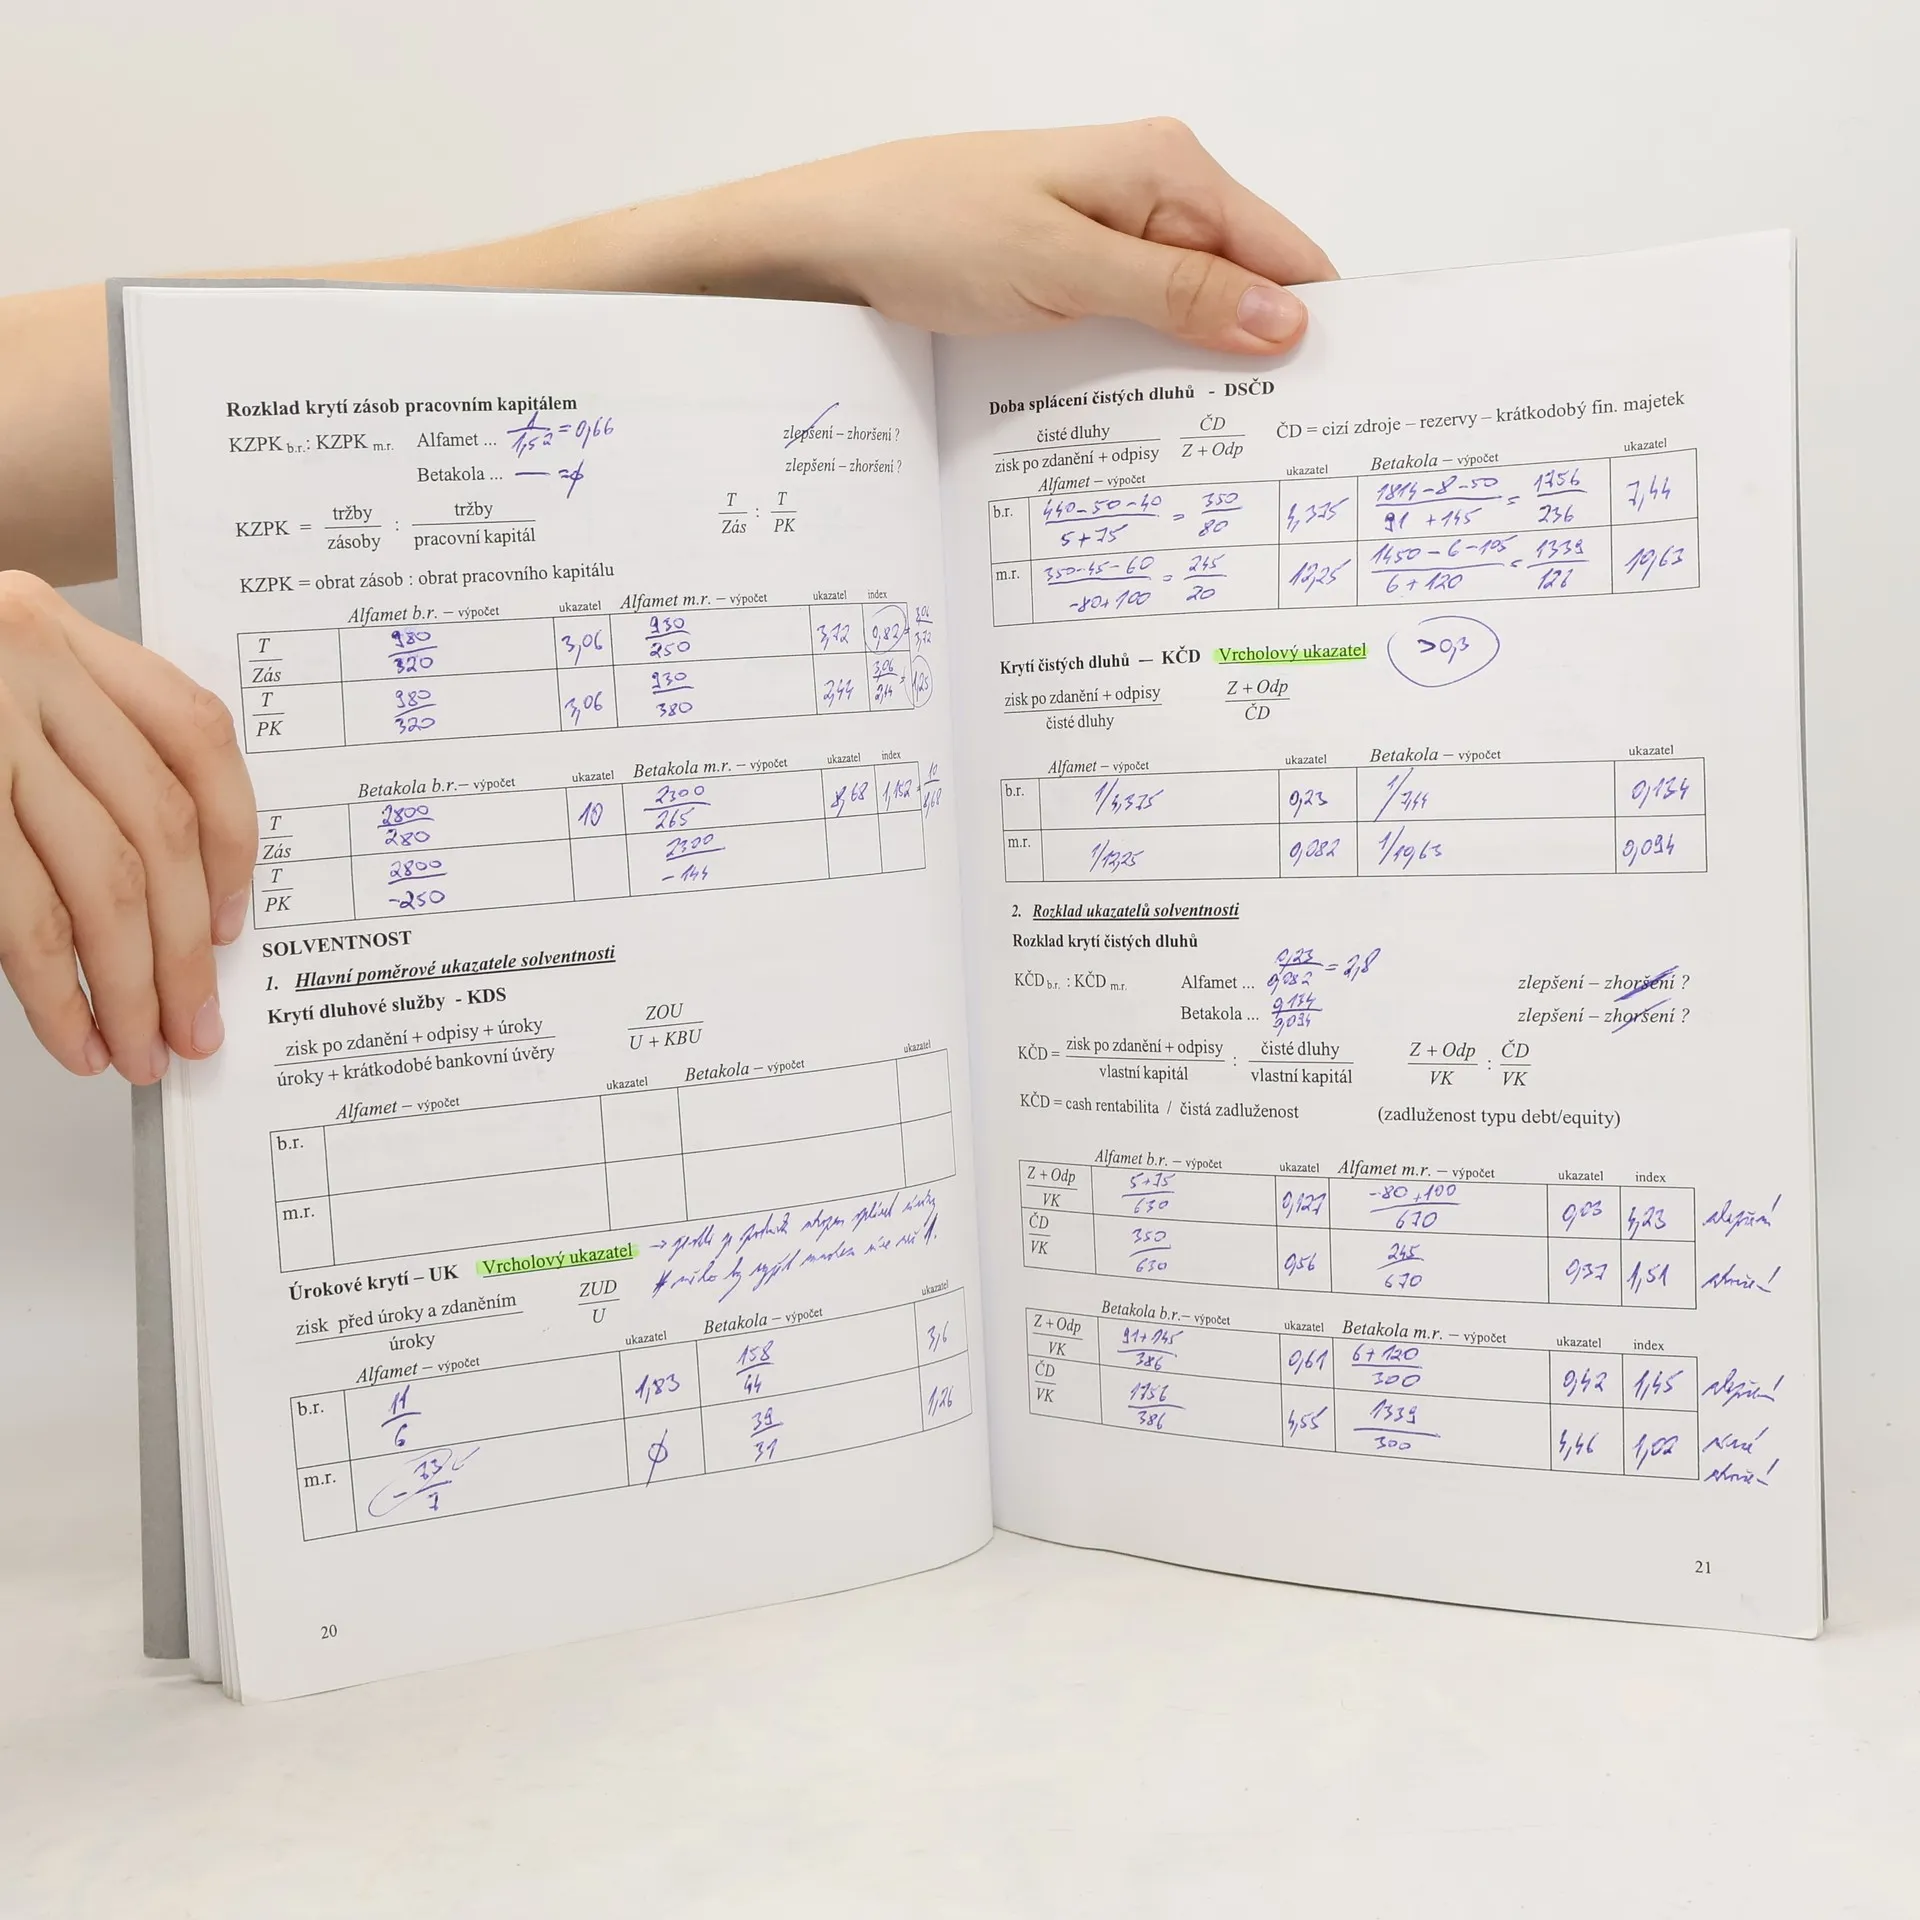 Rozklad krytí zásob pracovním kapitálem
KZPK b.r.: KZPK m.r. Alfamet ... 1/1,52 = 0,66 zlepšení – zhoršení ?
Betakola ... — = ϕ zlepšení – zhoršení ?
KZPK = tržby/zásoby : tržby/pracovní kapitál T/Zás : T/PK
KZPK = obrat zásob : obrat pracovního kapitálu
Alfamet b.r. – výpočet ukazatel Alfamet m.r. – výpočet ukazatel index
T/Zás 980/320 3,06 930/250 3,72 0,82 = 3,06/3,72
T/PK 980/320 3,06 930/380 2,44 3,06/2,44 = 1,25
Betakola b.r.– výpočet ukazatel Betakola m.r. – výpočet ukazatel index
T/Zás 2800/280 10 2300/265 8,68 1,152 = 10/8,68
T/PK 2800/-250 2300/-144
SOLVENTNOST
1. Hlavní poměrové ukazatele solventnosti
Krytí dluhové služby - KDS
zisk po zdanění + odpisy + úroky/úroky + krátkodobé bankovní úvěry ZOU/U + KBU
Alfamet – výpočet ukazatel Betakola – výpočet ukazatel
b.r.
m.r.
Úrokové krytí – UK Vrcholový ukazatel
zisk před úroky a zdaněním/úroky ZUD/U
Alfamet – výpočet ukazatel Betakola – výpočet ukazatel
b.r. 11/6 1,83 158/44 3,6
m.r. -73/7 ϕ 39/31 1,26
20
Doba splácení čistých dluhů - DSČD
čisté dluhy/zisk po zdanění + odpisy ČD/Z + Odp ČD = cizí zdroje – rezervy – krátkodobý fin. majetek
Alfamet – výpočet ukazatel Betakola – výpočet ukazatel
b.r. 440-50-40/5+75 = 350/80 4,375 1814-8-50/91+145 = 1756/236 7,44
m.r. 350-45-60/-80+100 = 245/20 12,25 1450-6-105/6+120 = 1339/126 10,63
Krytí čistých dluhů — KČD Vrcholový ukazatel >0,3
zisk po zdanění + odpisy/čisté dluhy Z + Odp/ČD
Alfamet – výpočet ukazatel Betakola – výpočet ukazatel
b.r. 1/4,375 0,23 1/7,44 0,134
m.r. 1/12,25 0,082 1/10,63 0,094
2. Rozklad ukazatelů solventnosti
Rozklad krytí čistých dluhů
KČD b.r. : KČD m.r. Alfamet ... 0,23/0,082 = 2,8 zlepšení – zhoršení ?
Betakola ... 0,134/0,094 zlepšení – zhoršení ?
KČD = zisk po zdanění + odpisy/vlastní kapitál : čisté dluhy/vlastní kapitál Z + Odp/VK : ČD/VK
KČD = cash rentabilita / čistá zadluženost (zadluženost typu debt/equity)
Alfamet b.r. – výpočet ukazatel Alfamet m.r. – výpočet ukazatel index
Z + Odp/VK 5+75/630 0,127 -80+100/670 0,03 4,23 zlepšení
ČD/VK 350/630 0,56 245/670 0,37 1,51 zhoršení
Betakola b.r.– výpočet ukazatel Betakola m.r. – výpočet ukazatel index
Z + Odp/VK 91+145/386 0,61 6+120/300 0,42 1,45 zlepšení
ČD/VK 1756/386 4,55 1339/300 4,46 1,02 zhoršení
21